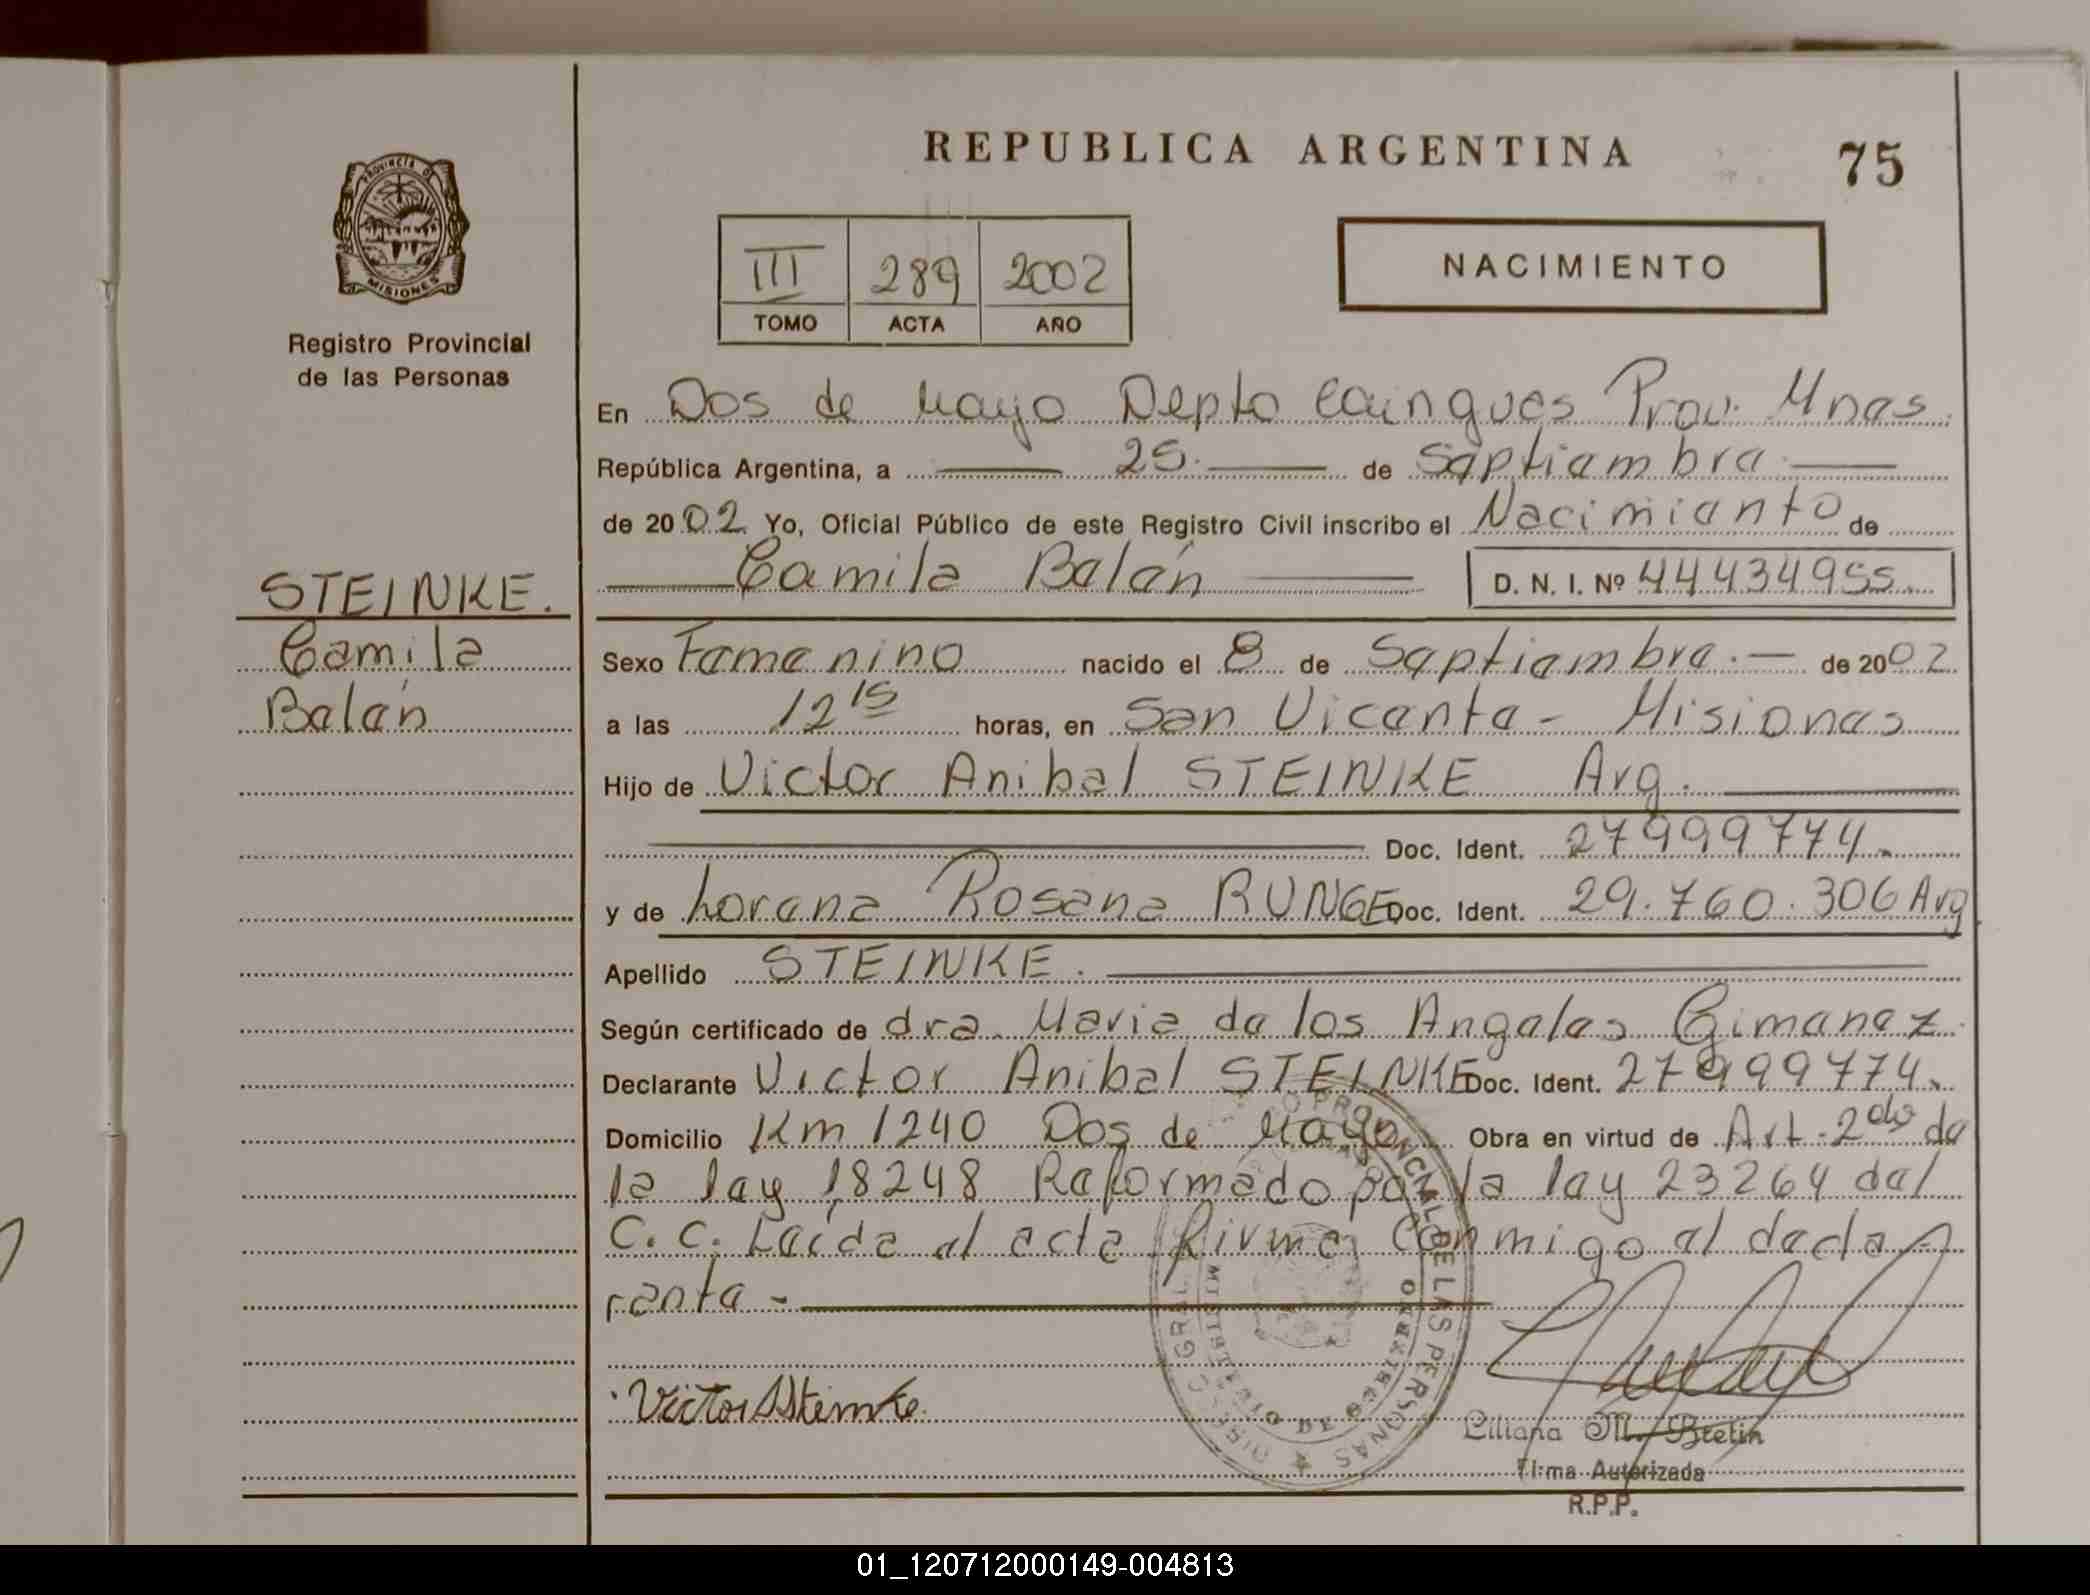 REPUBLICA ARGENTINA
75
PROVINCIA DE
MISIONES
Registro Provincial
de las Personas
III 289 2002
TOMO ACTA AÑO
NACIMIENTO
En Dos de Mayo Depto Cainguas Prov. Mnas.
República Argentina, a 25. de Septiembre.
de 2002 Yo, Oficial Público de este Registro Civil inscribo el Nacimiento de
Camila Belén D. N. I. Nº 44434955
STEINKE.
Camila
Belén
Sexo Femenino nacido el 8 de Septiembre. — de 2002
a las 12 15 horas, en San Vicente - Misiones
Hijo de Victor Anibal STEINKE Arg.
Doc. Ident. 27999774.
y de Lorena Rosana RUNGE Doc. Ident. 29.760.306 Arg
Apellido STEINKE.
Según certificado de dra. Maria de los Angeles Gimenez.
Declarante Victor Anibal STEINKE Doc. Ident. 27999774.
Domicilio Km 1240 Dos de Mayo Obra en virtud de Art. 2do de
la ley 18248 Reformado por la ley 23264 del
C.C. Leída el acta firma conmigo el decla-
rante -
Victor A Steinke.
Liliana M. Bretin
Firma Autorizada
R.P.P.
01_120712000149-004813